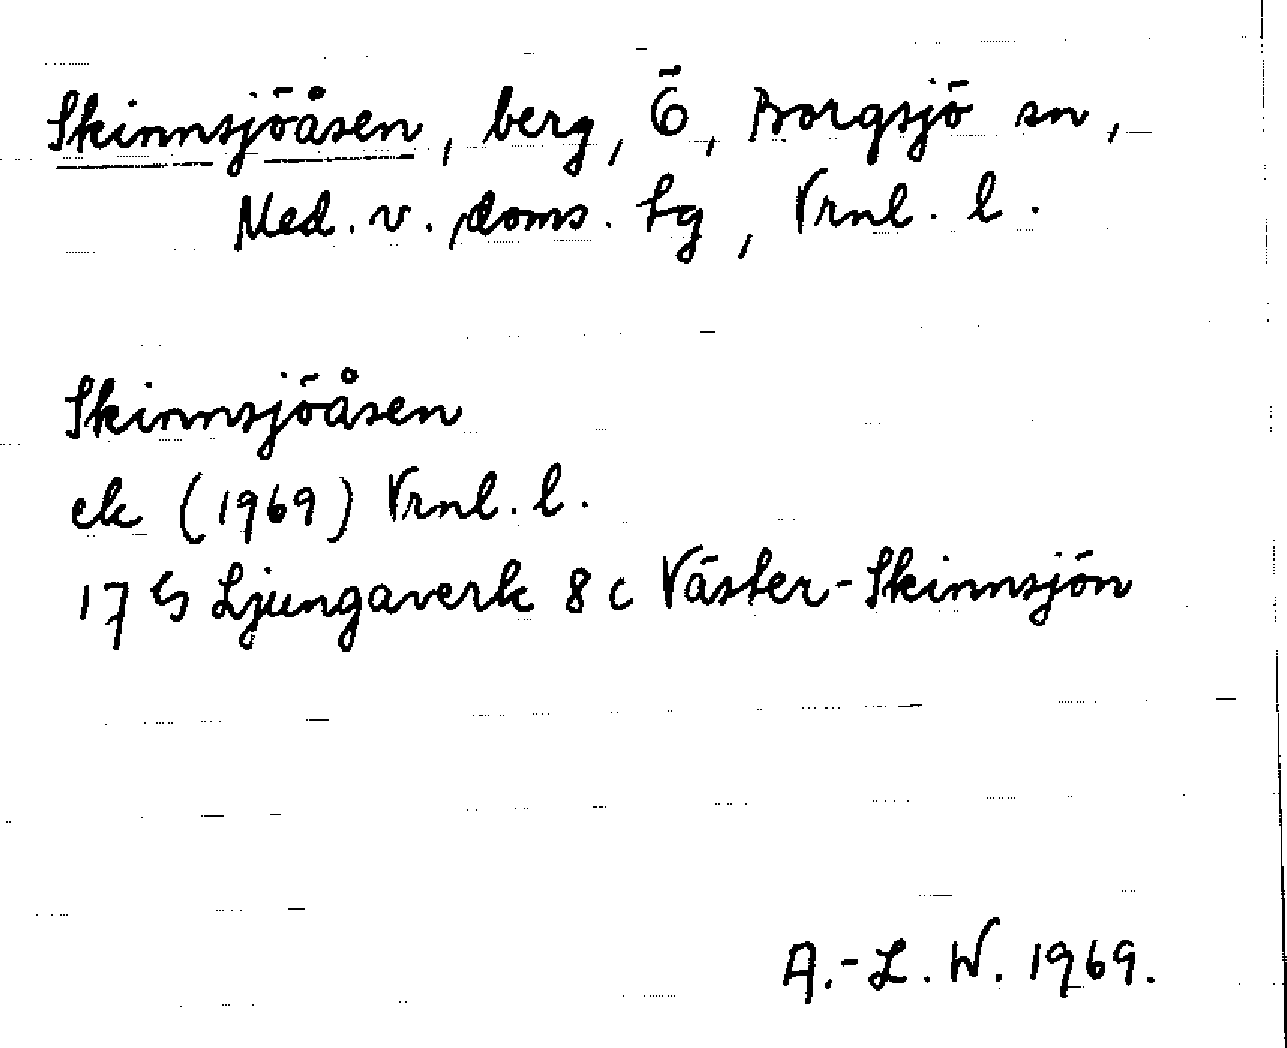 Skinnsjöåsen, berg, Ö, Borgsjö sn,
Med. v. doms. tg, Vrnl. l.
Skinnsjöåsen
ek (1969) Vrnl. l.
17 G Ljungaverk 8 c Väster-Skinnsjön
A.-L. W. 1969.